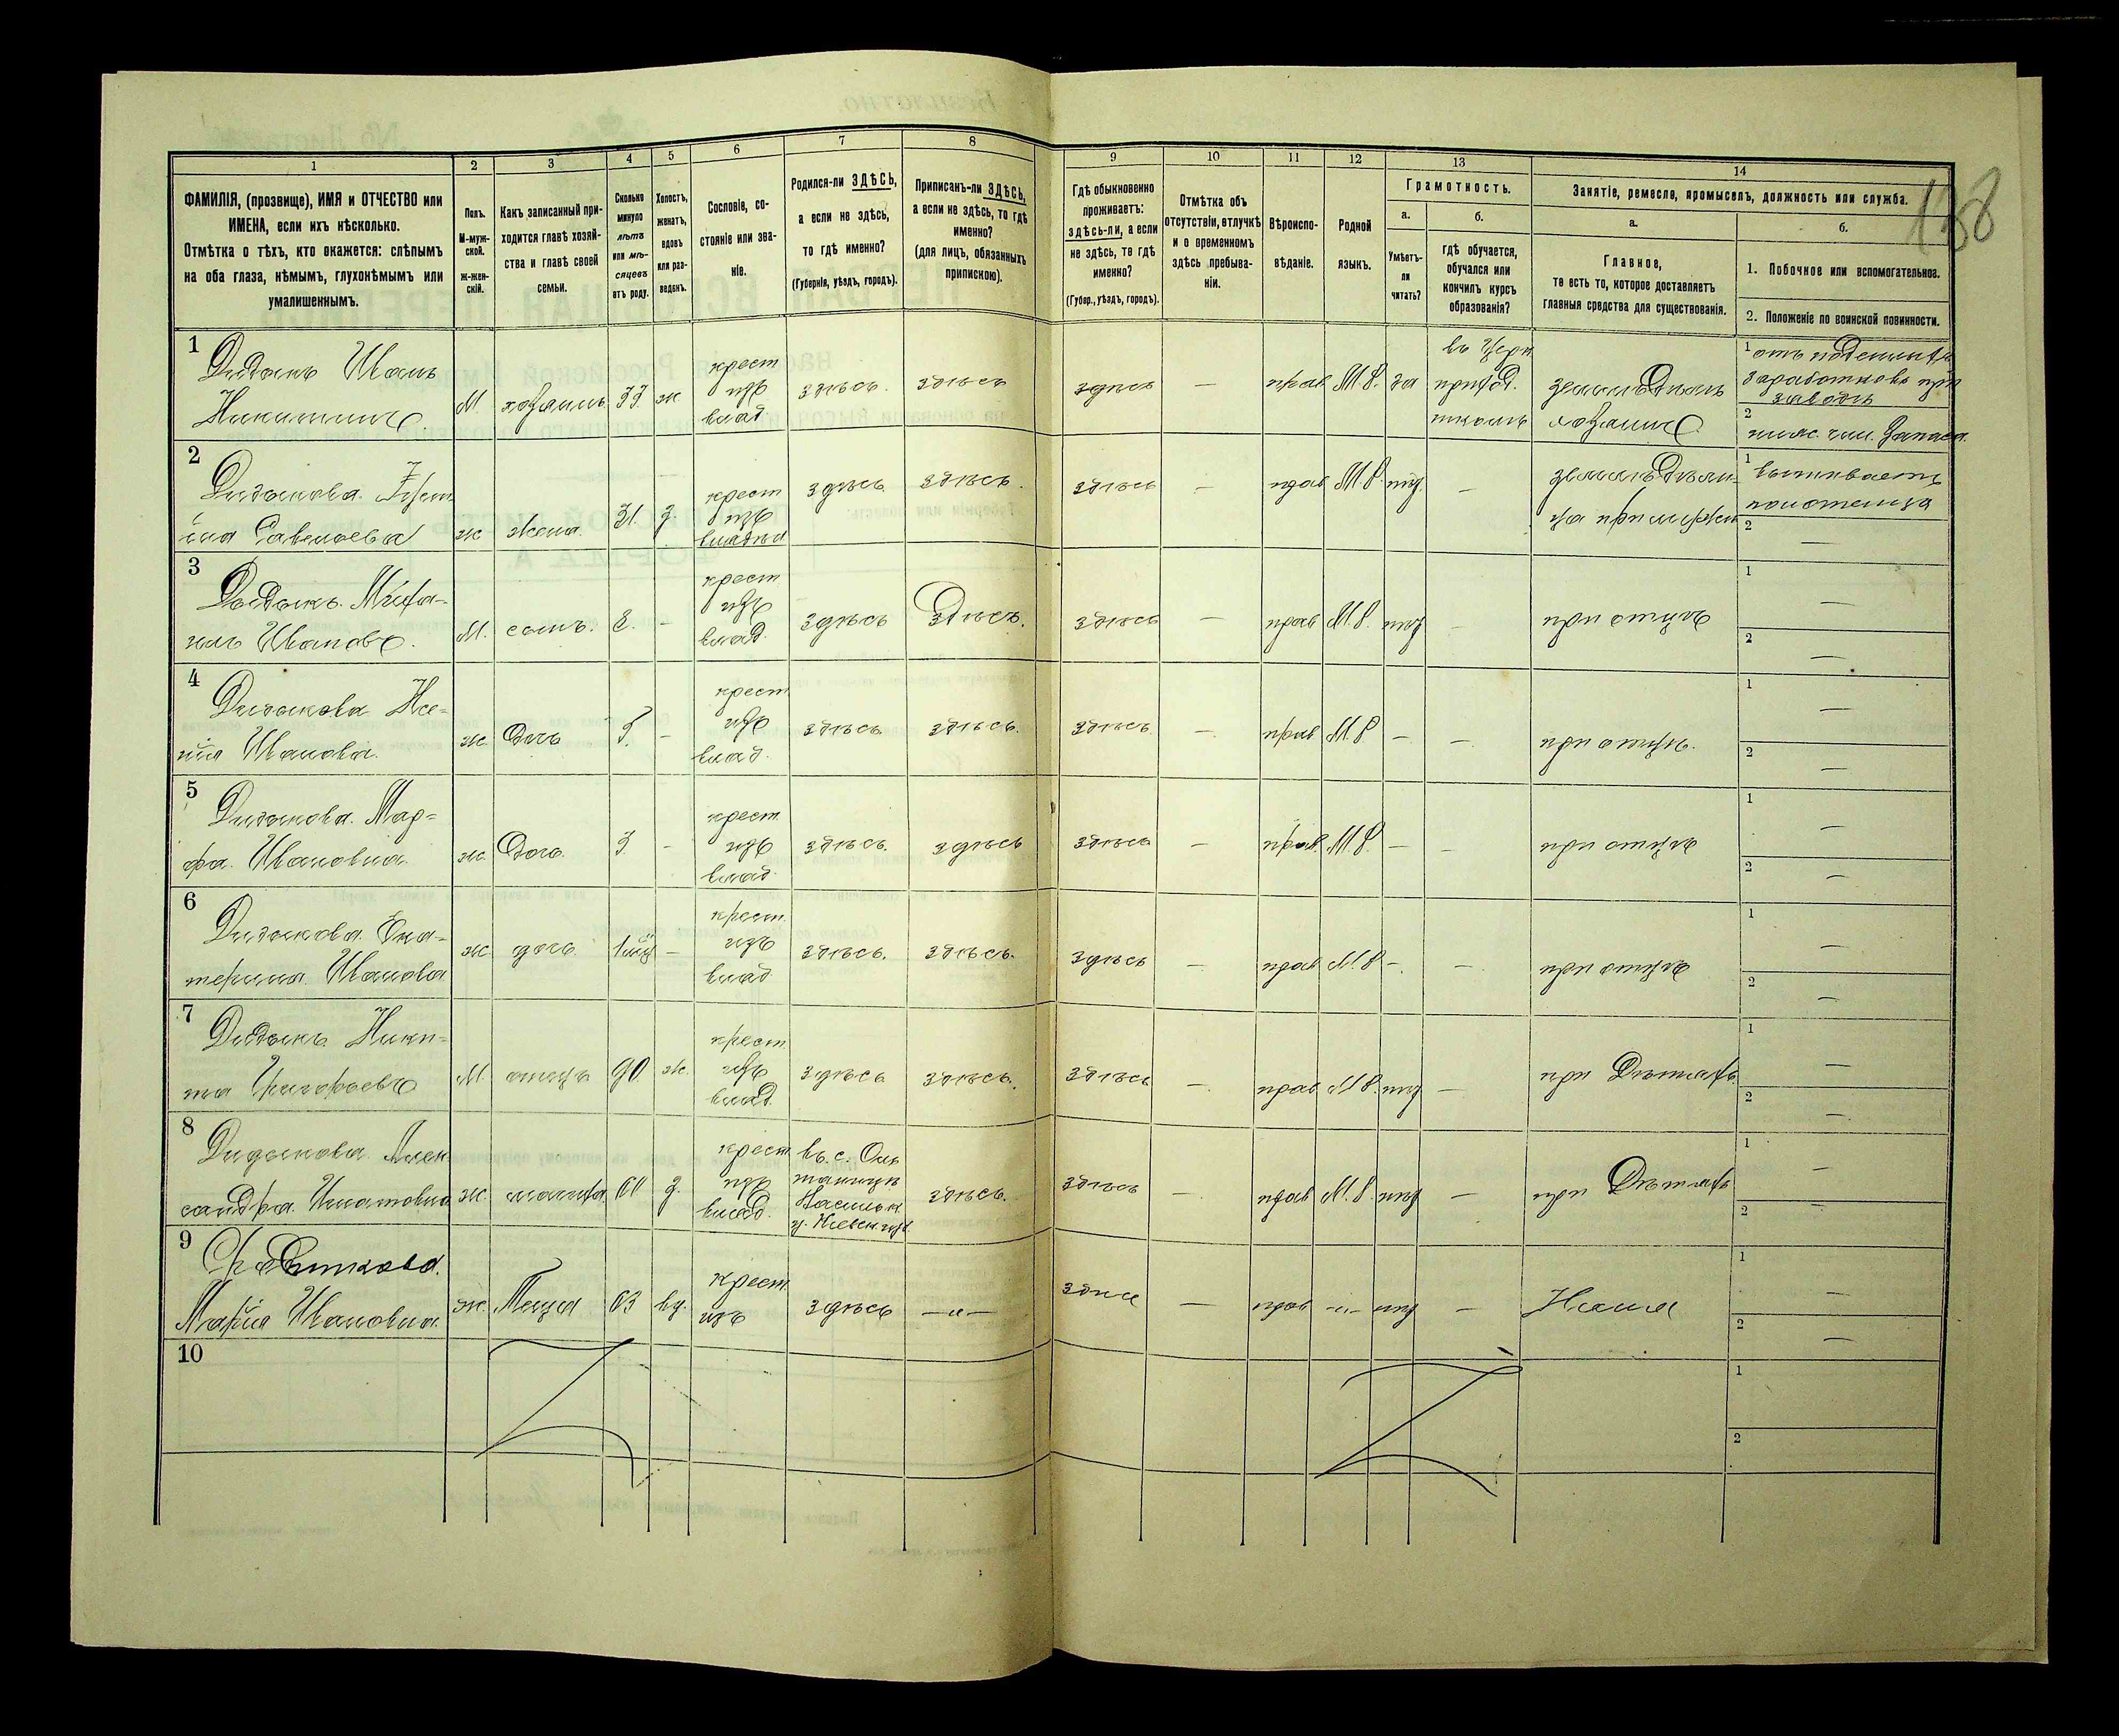 138
1
2
3
4
5
6
7
8
9
10
11
12
13
14
ФАМИЛІЯ, (прозвище), ИМЯ и ОТЧЕСТВО или
ИМЕНА, если ихъ нѣсколько.
Отмѣтка о тѣхъ, кто окажется: слѣпымъ
на оба глаза, нѣмымъ, глухонѣмымъ или
умалишеннымъ.
Полъ.
М-муж-
ской.
Ж-жен-
скій.
Какъ записанный при-
ходится главѣ хозяй-
ства и главѣ своей
семьи.
Сколько
минуло
лѣтъ
или мѣ-
сяцевъ
отъ роду.
Холостъ,
женатъ,
вдовъ
или раз-
веденъ.
Сословіе, со-
стояніе или зва-
ніе.
Родился-ли ЗДѢСЬ,
а если не здѣсь,
то гдѣ именно?
(Губернія, уѣздъ, городъ).
Приписанъ-ли ЗДѢСЬ,
а если не здѣсь, то гдѣ
именно?
(для лицъ, обязанныхъ
припискою).
Гдѣ обыкновенно
проживаетъ:
здѣсь-ли, а если
не здѣсь, то гдѣ
именно?
(Губер., уѣздъ, городъ).
Отмѣтка объ
отсутствіи, отлучкѣ
и о временномъ
здѣсь пребыва-
ніи.
Вѣроиспо-
вѣданіе.
Родной
языкъ.
Грамотность.
а.
Умѣетъ-
ли
читать?
б.
гдѣ обучается,
обучался или
кончилъ курсъ
образованія?
Занятіе, ремесло, промыселъ, должность или служба.
а.
Главное,
то есть то, которое доставляетъ
главныя средства для существованія.
б.
1. Побочное или вспомогательное.
2. Положеніе по воинской повинности.
1
Дидыкъ Иванъ
Никитинъ.
М. хозяинъ 33 ж крест изъ влад здѣсь. здѣсь здѣсь — прав М.Р. да
въ Церк
приход.
школѣ
земледѣлъ
хозяинъ
1 отъ поденныхъ
заработковъ при
заводѣ
2
2
Дидыкова
Савельева
ж жена 31. з. крест изъ здѣсь здѣсь. здѣсь — прав М.Р. —
1 вышиваетъ
полотенца
2 —
3
Дидыкъ. Миха-
илъ Ивановъ.
М. сынъ. 8. — крест изъ влад. здѣсь здѣсь. здѣсь — прав М.Р. — при отцѣ
1 —
2 —
4
Дидыкова Ксе-
нія Иванова.
ж. дочь 5. — крест изъ влад. здѣсь здѣсь. здѣсь — прав М.Р. — — при отцѣ.
1 —
2 —
5
Дидыкова. Мар-
фа. Ивановна.
ж. дочь. 3. — крест. изъ влад. здѣсь. здѣсь здѣсь — прав. М.Р. — — при отцѣ
1 —
2 —
6
Дидыкова. Ека-
терина. Иванова
ж дочь. — крест. изъ влад здѣсь. здѣсь. здѣсь — прав М.Р. —. — при отцѣ
1 —
2 —
7
Дидыкъ Ники-
та
М. отецъ 90. ж. крест. изъ влад. здѣсь здѣсь. здѣсь — прав М.Р. — при дѣтяхъ
1 —
2 —
8
Дидыкова. Алек
сандра. Игнатовна
ж 60 з. крест изъ влад. въ. с.
здѣсь. здѣсь — прав М.Р. — при дѣтяхъ
1 —
2 —
9
Марія Ивановна.
ж. Теща 63 вд. крест. изъ здѣсь —"— — прав —"— —
1 —
2 —
10
1
2